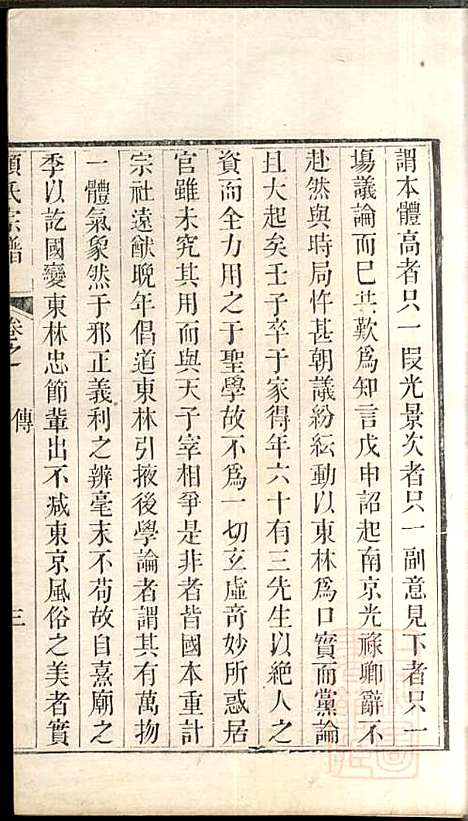 謂本體高者只一段光景次者只一副意見下者只一
塲議論而已共歎爲知言戊申詔起南京光祿卿辭不
赴然與時局忤甚朝議紛紜動以東林爲口實而黨論
且大起矣壬子卒于家得年六十有三先生以絶人之
資而全力用之于聖學故不爲一切玄虛奇妙所惑居
官雖未究其用而與天子宰相爭是非者皆國本重計
宗社遠猷晚年倡道東林引掖後學論者謂其有萬物
一體氣象然于邪正義利之辨毫末不苟故自熹廟之
季以訖國變東林忠節輩出不减東京風俗之美者實
顧氏宗譜 卷之一 傳 三